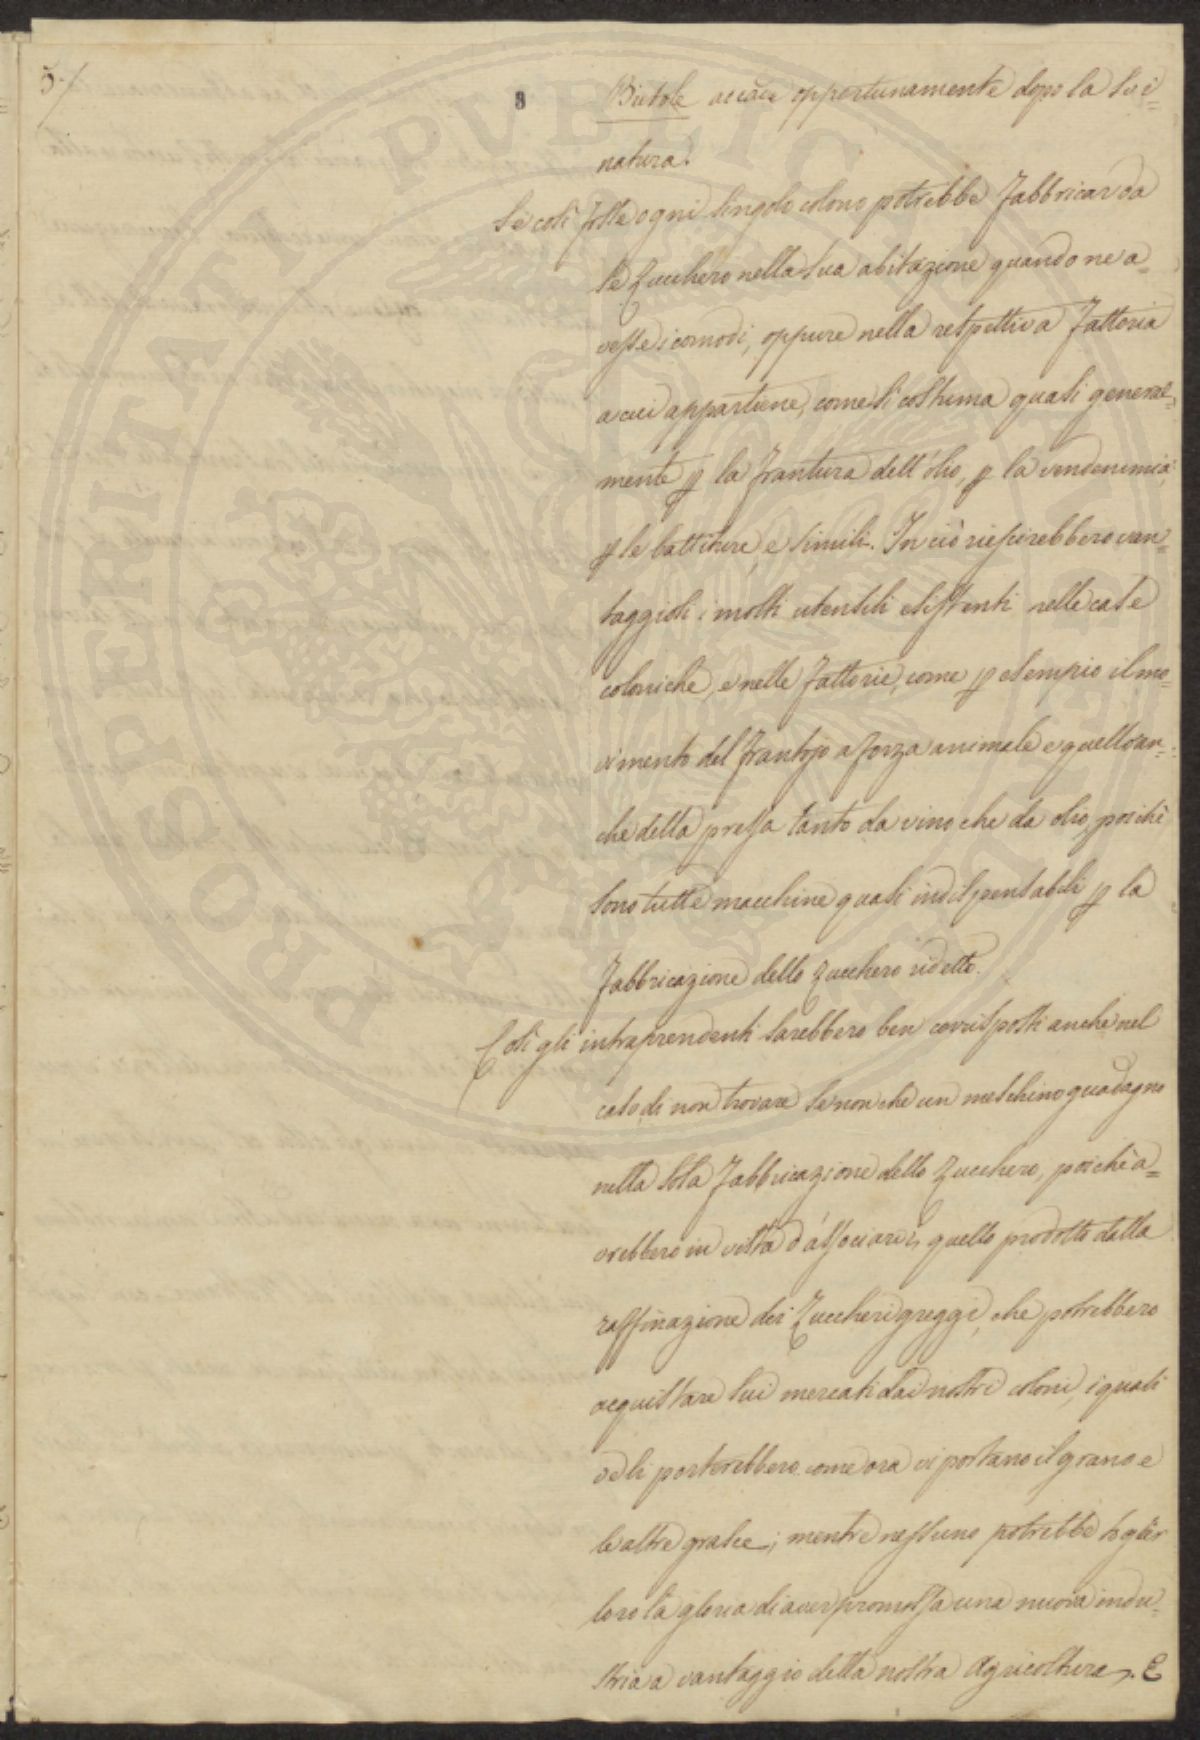 5./
8
Bietole accade opportunamente dopo la Svi=
natura.
Se così fosse ogni singolo colono potrebbe fabbricar da
se Zucchero nella sua abitazione quando ne a=
vesse i comodi, oppure nella respettiva Fattoria
a cui appartiene, come si costuma quasi general=
mente p la frantura dell'olio, p la vendemmia,
p le battiture, e simili. In ciò riescirebbero van=
taggiosi i molti utensili esistenti nelle case
coloniche, e nelle fattorie, come p esempio il mo=
vimento del frantojo a forza animale e quello an=
che della pressa tanto da vino che da olio, poichè
sono tutte macchine quasi indispensabili p la
fabbricazione dello Zucchero ridetto.
Così gli intraprendenti sarebbero ben corrisposti anche nel
caso di non trovare se non che un meschino guadagno
nella sola fabbricazione dello Zucchero, poichè a=
vrebbero in vista d'associarvi, quello prodotto dalla
raffinazione dei Zuccheri greggi, che potrebbero
acquistare sui mercati dai nostri coloni, i quali
ve li porterebbero come ora vi portano il grano e
le altre grasce; mentre nessuno potrebbe toglier
loro la gloria di aver promossa una nuova indu=
stria a vantaggio della nostra Agricoltura. E
PROSPERITATI PVBLICAE